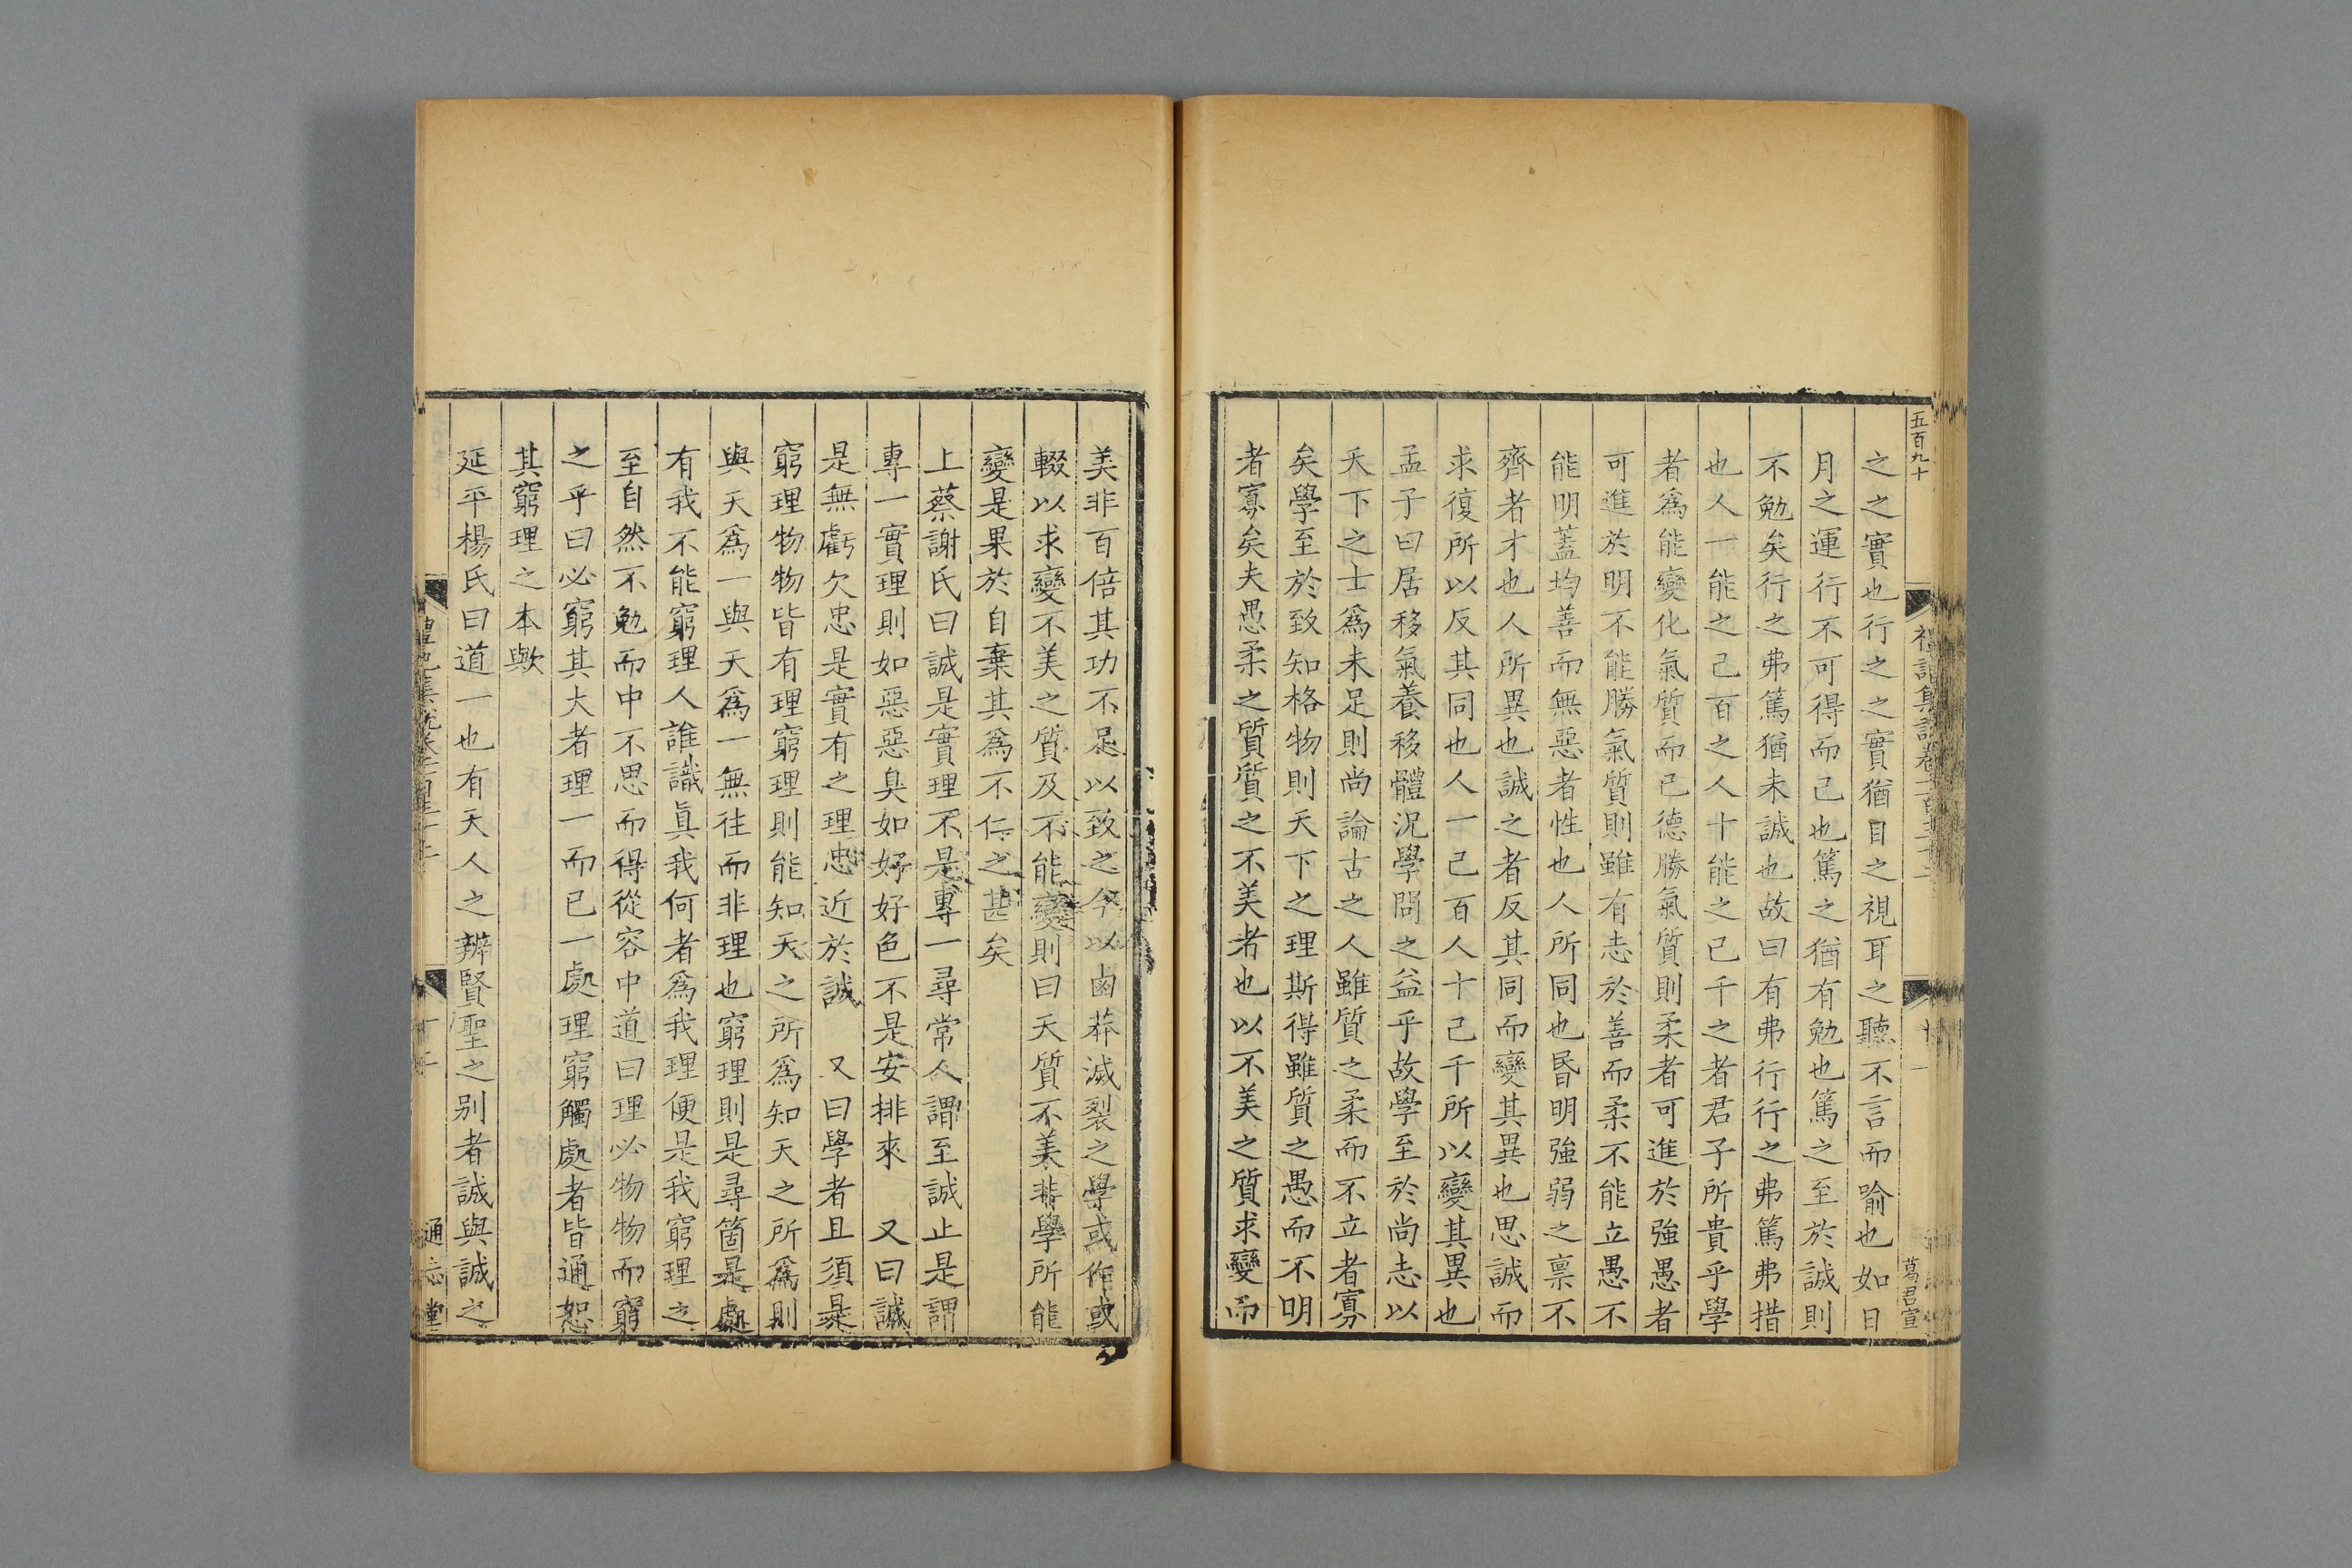 五百九十
之之實也行之之實猶目之視耳之聽不言而喻也如日
月之運行不可得而已也篤之猶有勉也篤之至於誠則
不勉矣行之弗篤猶未誠也故曰有弗行行之弗篤弗措
也人一能之己百之人十能之己千之者君子所貴乎學
者爲能變化氣質而已德勝氣質則柔者可進於強愚者
可進於明不能勝氣質則雖有志於善而柔不能立愚不
能明蓋均善而無惡者性也人所同也昬明強弱之禀不
齊者才也人所異也誠之者反其同而變其異也思誠而
求復所以反其同也人一己百人十己千所以變其異也
孟子曰居移氣養移體況學問之益乎故學至於尚志以
天下之士爲未足則尚論古之人雖質之柔而不立者寡
矣學至於致知格物則天下之理斯得雖質之愚而不明
者寡矣夫愚柔之質質之不美者也以不美之質求變而
葛君宣
美非百倍其功不足以致之今以鹵莽滅裂之學或作或
輟以求變不美之質及不能變則曰天質不美非學所能
變是果於自棄其爲不仁之甚矣
上蔡謝氏曰誠是實理不是專一尋常人謂至誠止是謂
專一實理則如惡惡臭如好好色不是安排來　又曰誠
是無虧欠忠是實有之理忠近於誠　又曰學者且須是
窮理物物皆有理窮理則能知天之所爲知天之所爲則
與天爲一與天爲一無往而非理也窮理則是尋箇是處
有我不能窮理人誰識真我何者爲我理便是我窮理之
至自然不勉而中不思而得從容中道曰理必物物而窮
之乎曰必窮其大者理一而已一處理窮觸處者皆通恕
其窮理之本歟
延平楊氏曰道一也有天人之辨賢聖之别者誠與誠之
通志堂